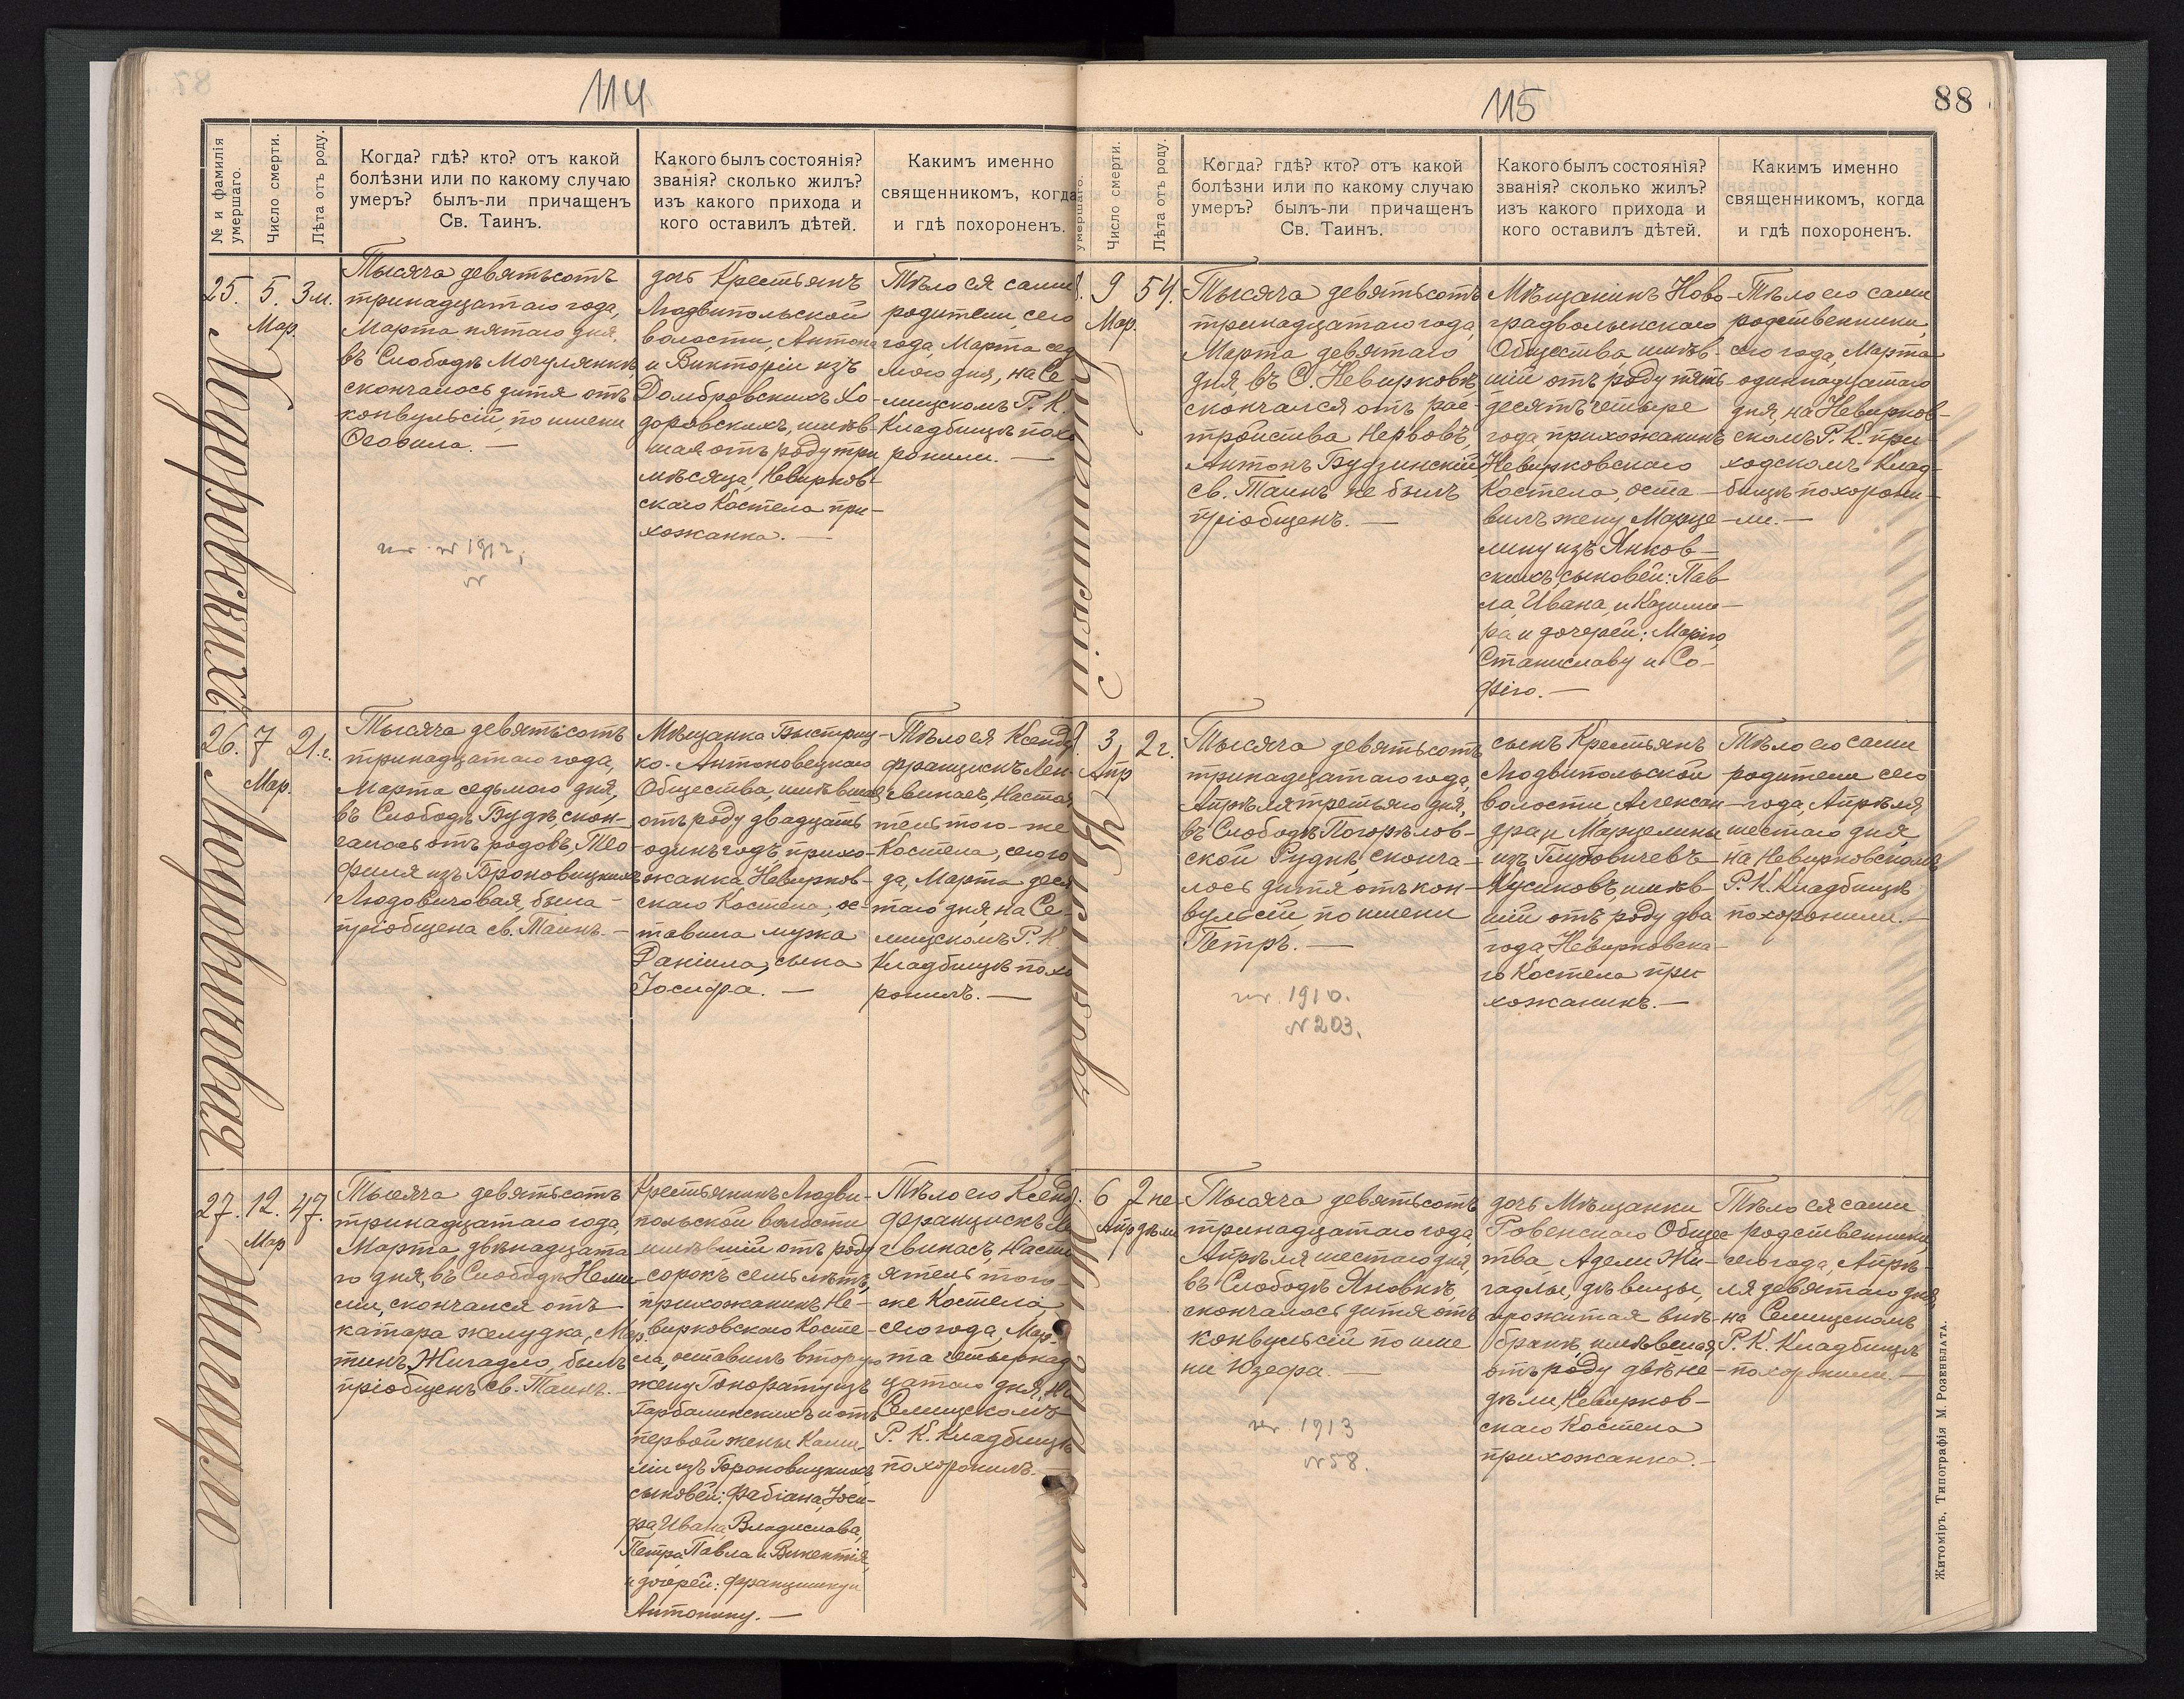 114
№ и фамилія умершаго.
Число смерти.
Лѣта отъ роду.
Когда? гдѣ? кто? отъ какой
болѣзни или по какому случаю
умеръ? былъ-ли причащенъ
Св. Таинъ.
Какого былъ состоянія?
званія? сколько жилъ?
изъ какого прихода и
кого оставилъ дѣтей.
Какимъ именно
священникомъ, когда
и гдѣ похороненъ.
25.
Ходоровскихъ
5.
Мар.
3 м.
Тысяча девятьсотъ
тринадцатаго года,
Марта пятаго дня,
въ Слободѣ Мочулянкѣ,
скончалось дитя отъ
конвульсій, по имени
Ѳеофила. —
дочь Крестьянъ
Людвипольской
волости, Антона
и Викторіи изъ
Домбровскихъ Хо-
доровскихъ, имѣв-
шая отъ роду три
мѣсяца, Невирков-
скаго Костела при-
хожанка. —
Тѣло ея сами
родители, сего
года, Марта сед
мого дня, на Се
лищскомъ Р. К.
Кладбищѣ похо
ронили. —
26.
Людовичовая
7
Мар.
21 г.
Тысяча девятьсотъ
тринадцатаго года,
Марта седьмого дня,
въ Слободѣ Будѣ, скон-
чалась отъ родовъ, Тео-
филя изъ Броновицкихъ
Людовичовая, была
пріобщена св. Таинъ. —
Мѣщанка Быстриц-
ко-Антоновецкаго
Общества, имѣвшая
отъ роду двадцать
одинъ годъ, прихо-
жанка, Невирков-
скаго Костела, ос-
тавила мужа
Даніила, сына
Іосифа. —
Тѣло ея Ксендз
Францискъ Лен-
гвинасъ, Настоя
тель того-же
Костела, сего го
да, Марта деся
таго дня, на Се-
лищскомъ Р. К.
Кладбищѣ похо
ронилъ. —
27.
Жигадло
12.
Мар
47.
Тысяча девятьсотъ
тринадцатаго года,
Марта двѣнадцата
го дня, въ Слободѣ Нели
ли, скончался отъ
катара желудка, Мар
тинъ Жигадло, былъ
пріобщенъ св. Таинъ. —
Крестьянинъ Людви-
польской волости
имѣвшій отъ роду
сорокъ семь лѣтъ,
прихожанинъ Не-
вирковскаго Косте-
ла, оставилъ вторую
жену Гонорату изъ
Гарбалинскихъ и отъ
первой жены Ками-
ліи изъ Броновицкихъ
сыновей: Фабіана, Іоси-
фа, Ивана, Владислава,
Петра, Павла и Викентія,
и дочерей: Францишку и
Антонину. —
Тѣло его Ксендз
Францискъ Ле
гвинасъ, Насто
ятель того-
же Костела,
сего года, Мар-
та четырнад
цатаго дня, на
Селищскомъ
Р. К. Кладбищѣ
похоронилъ. —
115
88
умершаго.
Число смерти.
Лѣта отъ роду.
Когда? гдѣ? кто? отъ какой
болѣзни или по какому случаю
умеръ? былъ-ли причащенъ
Св. Таинъ.
Какого былъ состоянія?
званія? сколько жилъ?
изъ какого прихода и
кого оставилъ дѣтей.
Какимъ именно
священникомъ, когда
и гдѣ похороненъ.
9
Мар.
54.
Тысяча девятьсотъ
тринадцатаго года,
Марта девятаго
дня, въ С. Невирковѣ
скончался отъ рас-
тройства нервовъ,
Антонъ Будзинскій,
св. Таинъ не былъ
пріобщенъ. —
Мѣщанинъ Ново-
градволынскаго
Общества имѣв-
шій отъ роду пять-
десятъ четыре
года прихожанинъ
Невирковскаго
Костела, оста-
вилъ жену Марце-
лину изъ Янков-
скихъ, сыновей: Пав-
ла, Ивана, и Казими-
ра и дочерей: Марію,
Станиславу и Со-
фію. —
Тѣло его сами
родственники,
сего года, Марта
одиннадцатаго
дня, на Невирков-
скомъ Р. К. при-
ходскомъ Клад-
бищѣ похорони-
ли. —
3
Апр
2 г.
Тысяча девятьсотъ
тринадцатаго года,
Апрѣля третьяго дня,
въ Слободѣ Погорѣлов-
ской Рудкѣ, сконча-
лось дитя отъ кон-
вульсій, по имени
Петръ. —
1910.
№ 203.
сынъ Крестьянъ
Людвипольской
волости, Алексан-
дра и Марцелины
изъ Глубовичевъ
Кусиковъ, имѣв-
шій отъ роду два
года, Невирковска-
го Костела при-
хожанинъ. —
Тѣло его сами
родители сего
года, Апрѣля
шестаго дня
на Невирковскомъ
Р. К. Кладбищѣ
похоронили. —
6
Апр
2 не
дѣли
Тысяча девятьсотъ
тринадцатаго года,
Апрѣля шестаго дня,
въ Слободѣ Яновкѣ,
скончалось дитя отъ
конвульсій по име
ни Юзефа. —
1913
№ 58.
дочь Мѣщанки
Ровенскаго Общес
тва Адели Жи-
гадлы, дѣвицы,
прожитая внѣ-
брака, имѣвшая,
отъ роду двѣ не-
дѣли, Невирков-
скаго Костела
прихожанка. —
Тѣло ея сами
родственники,
сего года, Апрѣ-
ля девятаго дня,
на Селищскомъ
Р. К. Кладбищѣ
похоронили. —
Житоміръ, Типографія М. Розенблата.